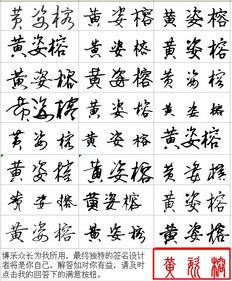 黄姿榕 黄姿榕 黄姿榕
黄姿榕 黄姿榕 黄姿榕
黄姿榕 黄姿榕 黄姿榕
黄姿榕 黄姿榕 黄姿榕
黄姿榕 黄姿榕 黄姿榕
黄姿榕 黄姿榕 黄姿榕
黄姿榕 黄姿榕 黄姿榕
黄姿榕 黄姿榕 黄姿榕
博采众长为我所用，最终独特的签名设计
者将是你自己。解答如对你有益，请及时
点击我的回答下的满意按钮。
黄姿榕